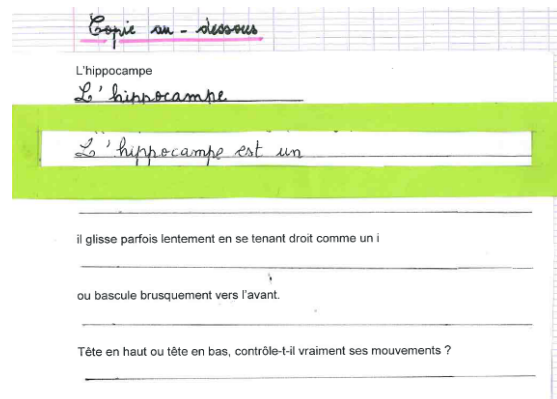 Copie au-dessous
L'hippocampe
L'hippocampe
L'hippocampe est un
il glisse parfois lentement en se tenant droit comme un i
ou bascule brusquement vers l'avant.
Tête en haut ou tête en bas, contrôle-t-il vraiment ses mouvements ?